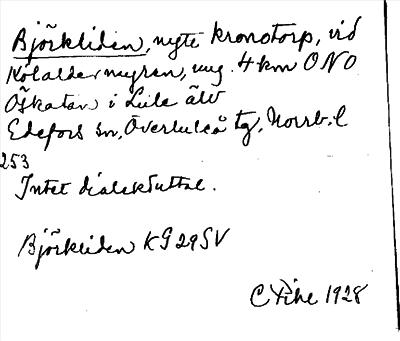 Björkliden, nytt kronotorp, vid
Kölaldermyran, ung. 4 km ONO
Öskatan i Lule älv
Edefors sn, Överluleå tg, Norrb. l
253
Intet dialektuttal.
Björkliden KG 29 SV
C Pihl 1928